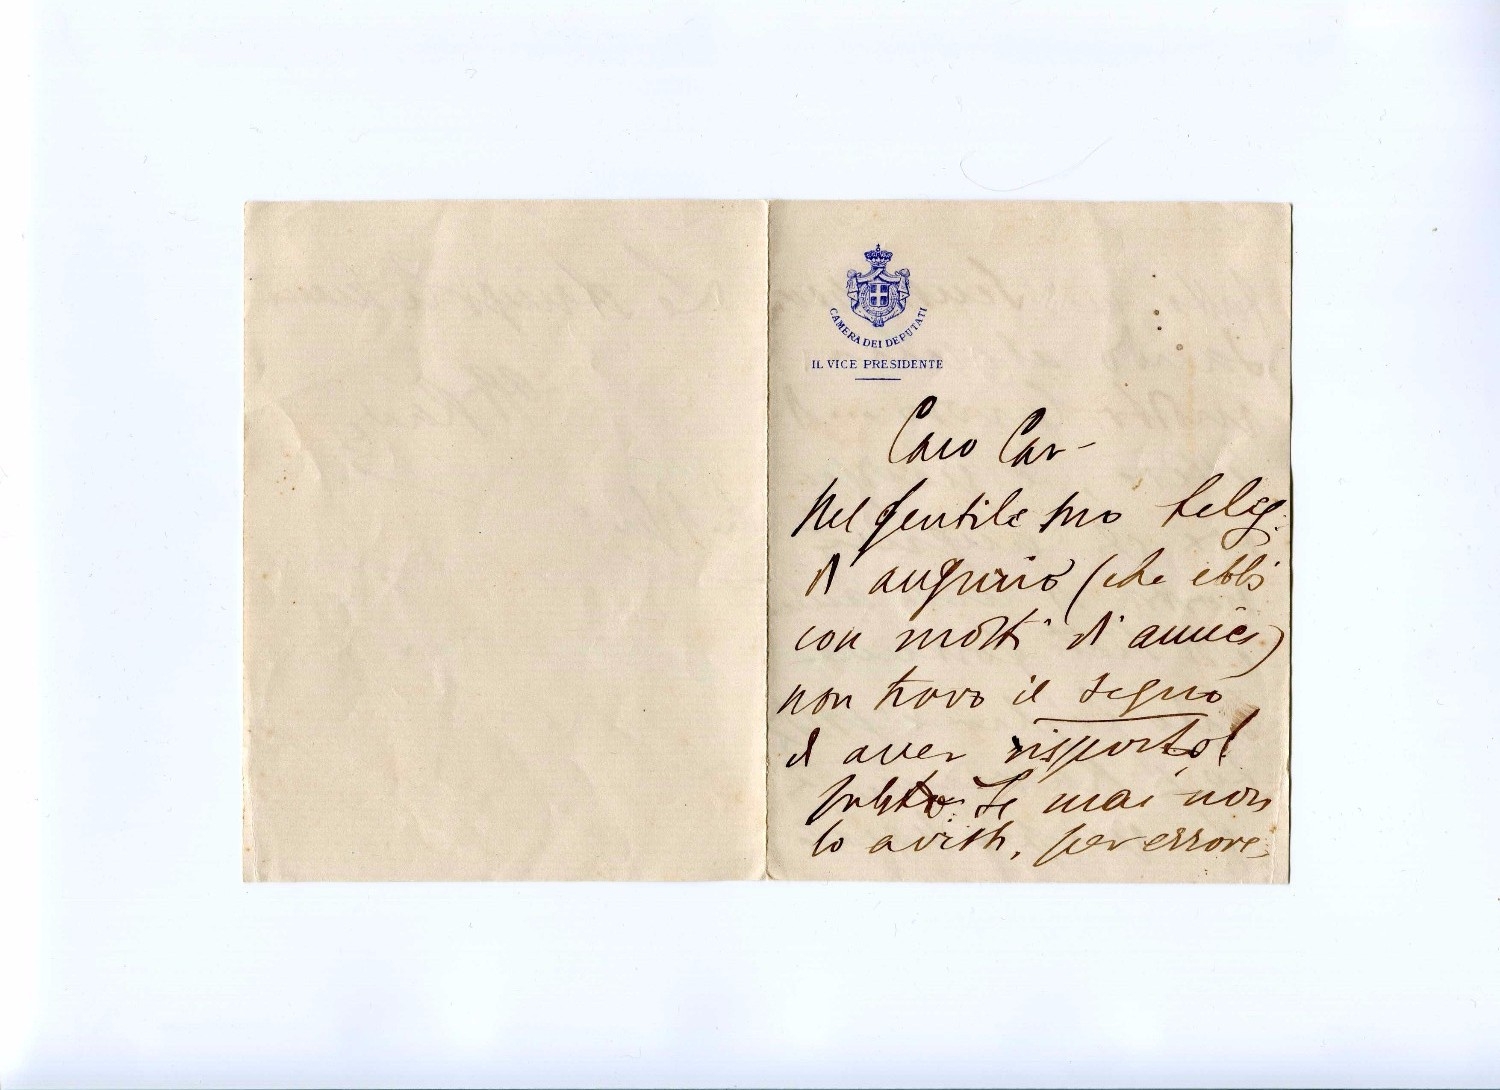 CAMERA DEI DEPUTATI
IL VICE PRESIDENTE
Caro Cav-
Nel gentile tuo teleg.
di augurio (che ebbi
con molti di amici)
non trovo il segno
di aver risposto!
subito. Se mai non
lo avessi, per errore,